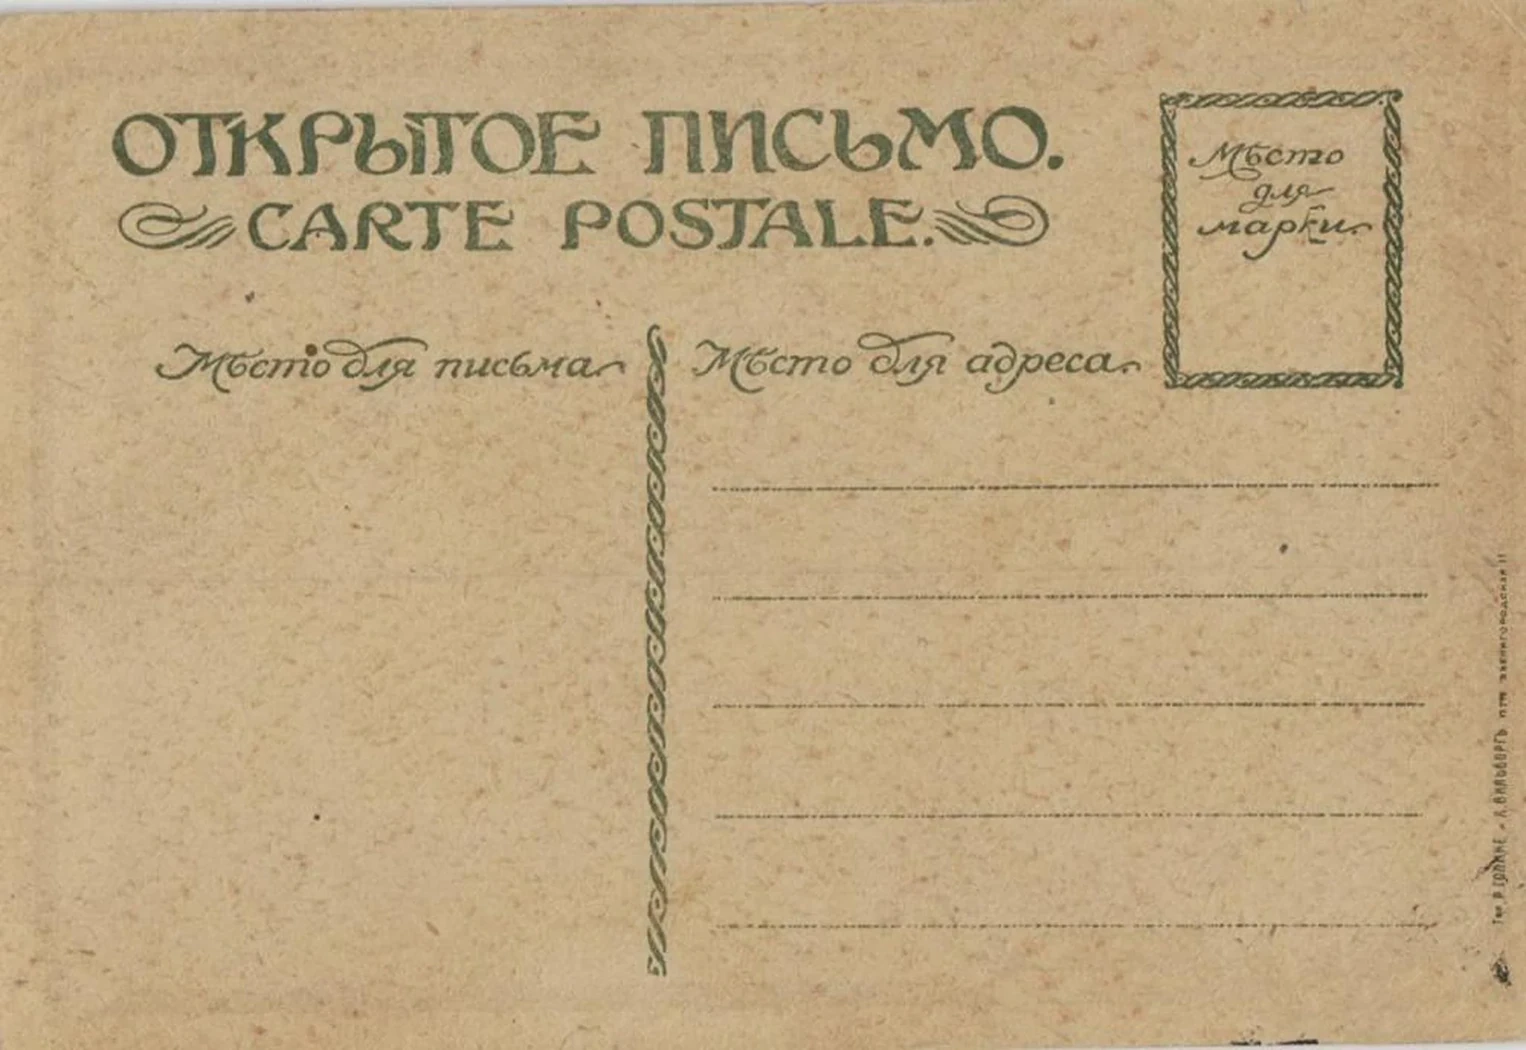 ОТКРЫТОЕ ПИСЬМО.
CARTE POSTALE.
Мѣсто
для
марки.
Мѣсто для письма
Мѣсто для адреса.
Тип. Р. ГОЛИКЕ и А. ВИЛЬБОРГЪ ПТГ Звенигородская 11